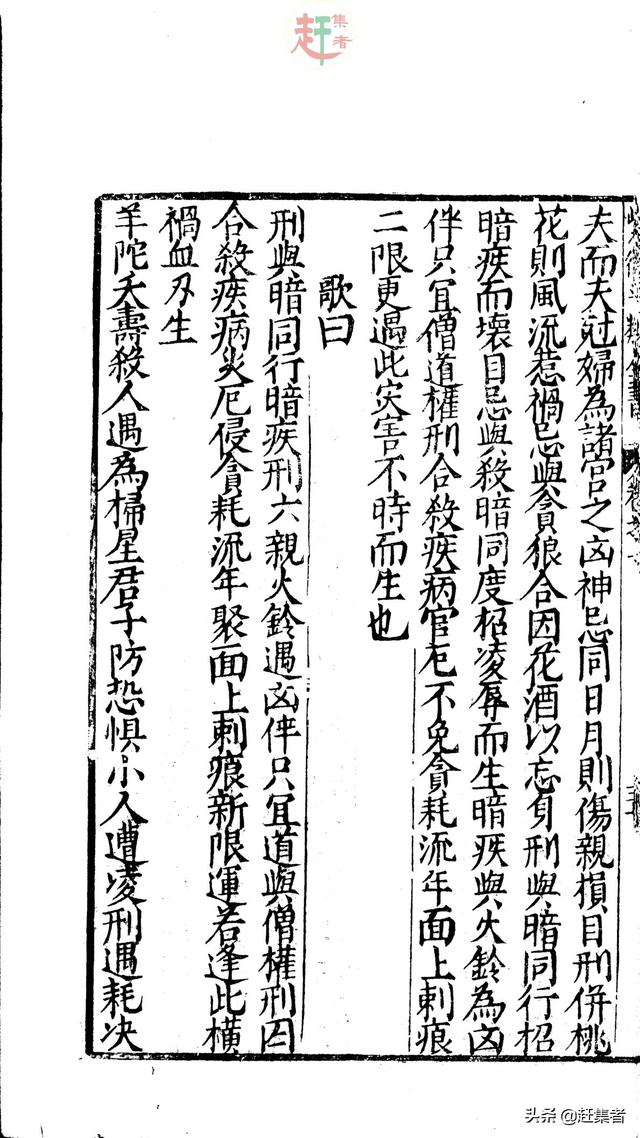 赶集者
夫而夫尅婦為諸宮之凶神忌同日月則傷親損目刑併桃
花則風流惹禍忌與貪狼合因花酒以忘身刑與暗同行招
暗疾而壞目忌與殺暗同度招凌辱而生暗疾與火鈴為凶
伴只宜僧道權刑合殺疾病官厄不免貪耗流年面上刺痕
二限更遇此灾害不時而生也
歌曰
刑與暗同行暗疾刑六親火鈴遇凶伴只宜道與僧權刑囚
合殺疾病災厄侵貪耗流年聚面上刺痕新限運若逢此橫
禍血刃生
羊陀夭壽殺人遇為掃星君子防恐惧小人遭凌刑遇耗决
头条 @赶集者